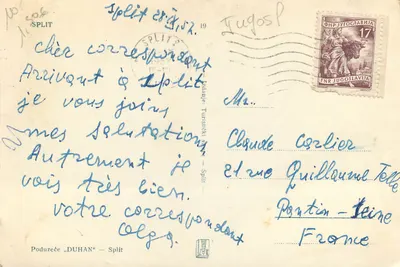 Split 28.IX.52.
SPLIT
19
Yugosl
cher correspondant
Arrivant à Split
je vous joins
mes salutations
Autrement je
vois très bien.
votre correspondant
Olga.
Poduzeće „DUHAN" — Split
SPLIT
FNR JUGOSLAVIJA
17
Mr.
Claude Carlier
21 rue Quillaume Telle
Pantin-Seine
France